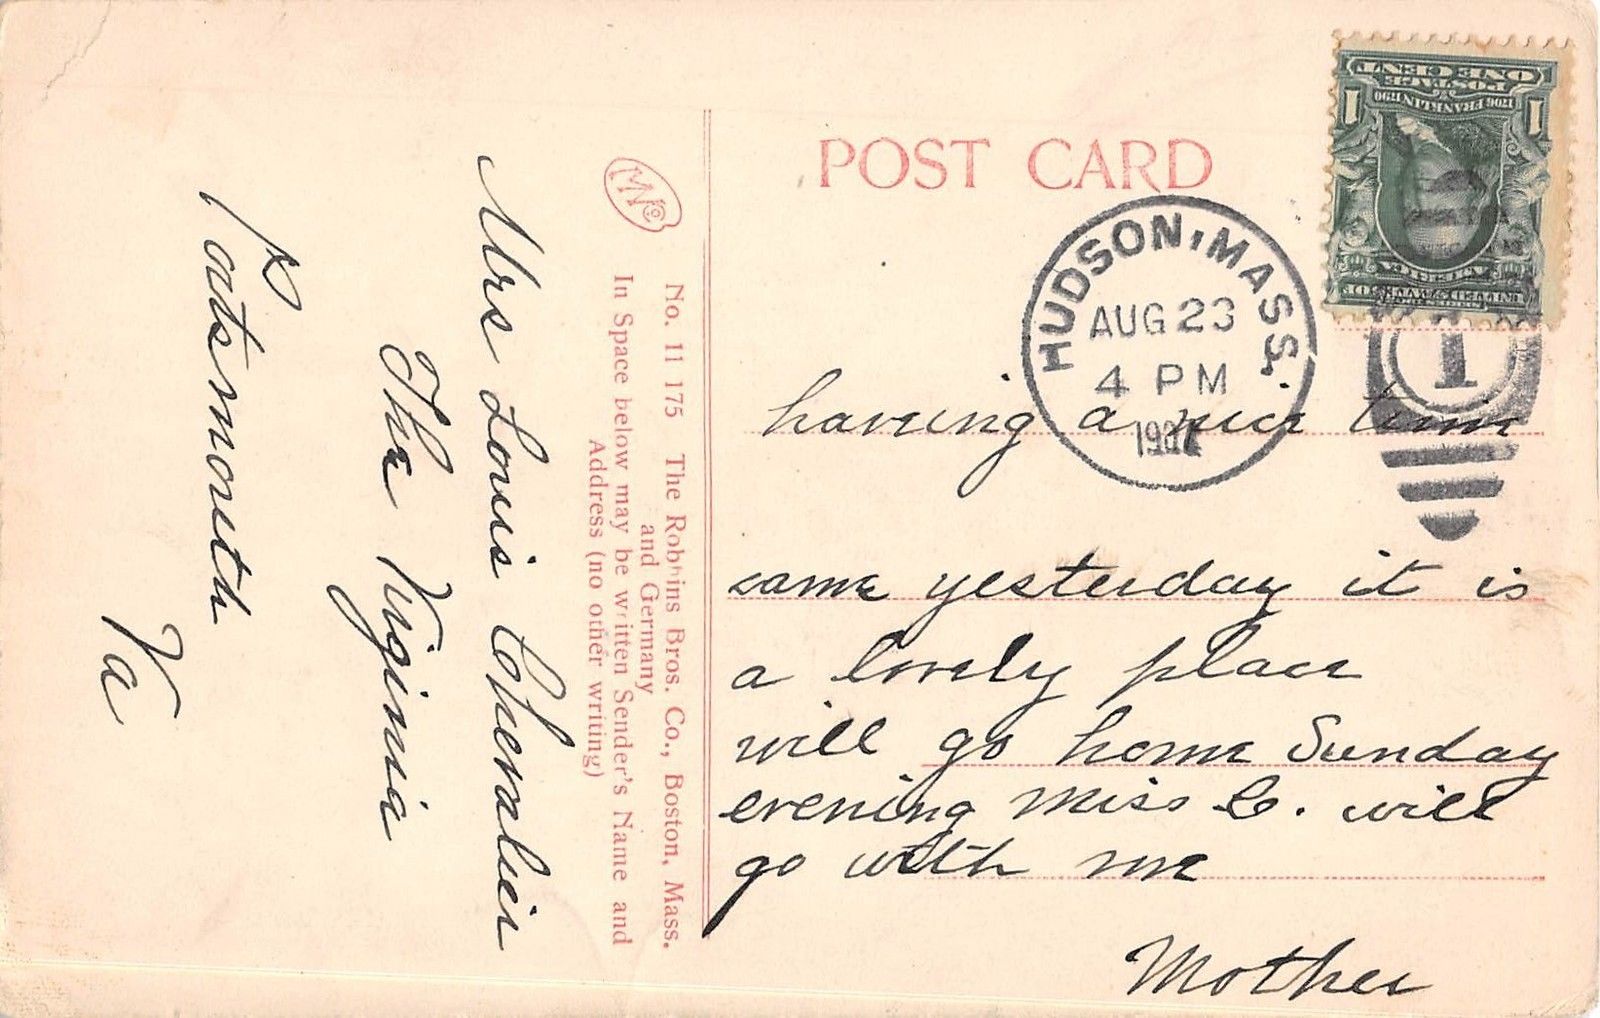 POST CARD
HUDSON, MASS.
AUG 23
4 PM
ONE CENT
POSTAGE
1706 FRANKLIN 1790
1 1
UNITED STATES OF
AMERICA
1
having a nice time
same yesterday it is
a lovely place
will go home Sunday
evening Miss C. will
go with me
Mother
No. 11 175 The Robbins Bros. Co., Boston, Mass.
and Germany
In Space below may be written Sender's Name and
Address (no other writing)
Mrs Louis Chevalier
The Virginia
Patsmouth
Va